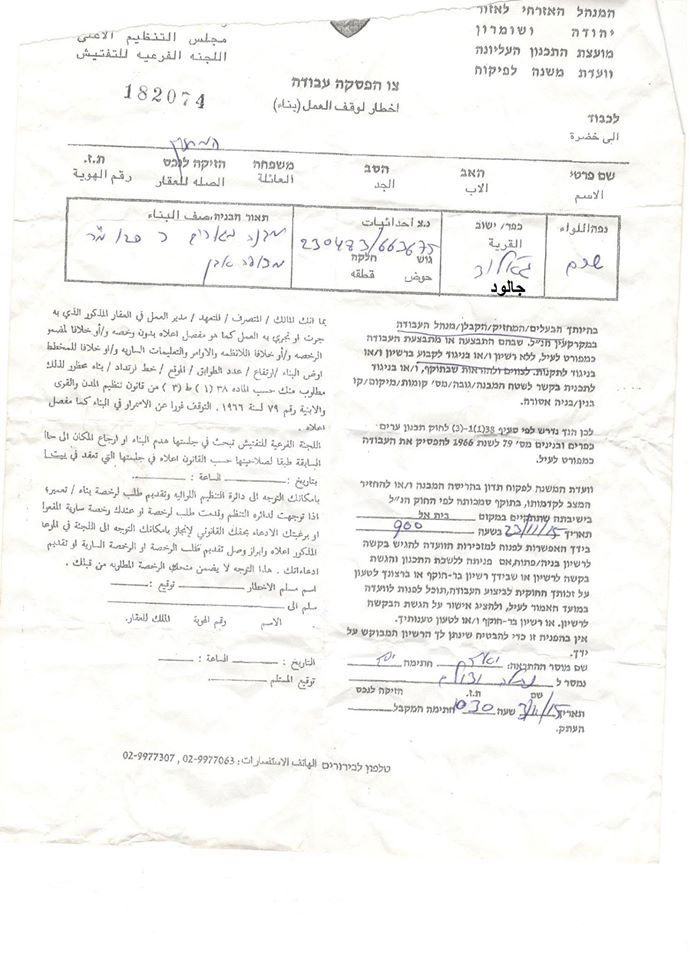 המנהל האזרחי לאזור
יהודה ושומרון
מועצת התכנון העליונה
וועדת משנה לפיקוח
مجلس التنظيم الاعلى
اللجنه الفرعيه للتفتيش
צו הפסקה עבודה
اخطار لوقف العمل (بناء)
182074
לכבוד
الى حضرة
שם פרטי האב הסב משפחה הזיקה לנכס ת.ז.
الاسم الاب الجد العائلة الصله للعقار رقم الهوية
נפה/اللواء
שכם
כפר/ישוב
القرية
ג'אלוד
جالود
נ.צ احداثيات
230473/663675
גוש חלקה
حوض قطعه
תאור הבניה/صف البناء
מבנה
בהיותך הבעלים/המחזיק/הקבלן/מנהל העבודה
במקרקעין הנ"ל, שבהם התבצעה או מתבצעת העבודה
כמפורט לעיל, ללא רשיון ו/או בניגוד לקבוע ברשיון ו/או
בניגוד לתקנות, לצווים ולהוראות שבתוקף, ו/או בניגוד
לתכנית בקשר לשטח המבנה/גובה/מס' קומות/מיקום/קו
בנין/בניה אסורה.
לכן הנך נדרש לפי סעיף 38(1)-(3) לחוק תכנון ערים
כפרים ובנינים מס' 79 לשנת 1966 להפסיק את העבודה
כמפורט לעיל.
וועדת המשנה לפקוח תדון בהריסת המבנה ו/או להחזיר
המצב לקדמותו, בתוקף סמכותה לפי החוק הנ"ל
בישיבתה שתתקיים במקום בית אל
תאריך 23/11/15 בשעה 900
בידך האפשרות לפנות למזכירות הוועדה להגיש בקשה
לרשיון בניה/פתוח, אם פניתה ללשכת התכנון והגשת
בקשה לרשיון או שבידך רשיון בר-חוקף או ברצונך לטעון
על זכותך החוקית לביצוע העבודה, תוכל לפנות לוועדה
במועד האמור לעיל, ולהציג אישור על הגשת הבקשה
לרשיון, או רשיון בר-חוקף ו/או לטעון טענותיך.
אין בהפניה זו כדי להבטיח שינתן לך הרשיון המבוקש על
ידך.
שם מוסר ההתראה: חתימה
נמסר ל
שם ת.ז. הזיקה לנכס
תאריך 3/11/15 שעה 1030 חתימה המקבל
העתק.
بما انك المالك / المتصرف / المتعهد / مدير العمل في العقار المذكور الذي به
جرت او تجري به العمل كما هو مفصل اعلاه بدون رخصه و/أو خلافا لمضمون
الرخصه و/أو خلافا للانظمه والاوامر والتعليمات الساريه و/او خلافا للمخطط
اوض البناء /ارتفاع / عدد الطوابق / الموقع / خط ارتداد / بناء محظور لذلك
مطلوب منك حسب الماده ٣٨ (١) ط (٣) من قانون تنظيم المدن والقرى
والابنية رقم ٧٩ لسنة ١٩٦٦، التوقف فورا عن الاستمرار في البناء كما مفصل
اعلاه.
اللجنه الفرعيه للتفتيش تبحث في جلستها هدم البناء او ارجاع المكان الى حاا
السابقة طبقا لصلاحيتها حسب القانون اعلاه في جلستها التي تعقد في
بتاريخ: الساعة:
بامكانك التوجه الى دائرة التنظيم اللوائيه وتقديم طلب لرخصة بناء / تعمير؛
اذا توجهت لدائره التنظم وقدمت طلب لرخصة او عندك رخصة سارية المفعوا
او برغبتك الادعاء بحقك القانوني لإنجاز بامكانك التوجه الى اللجنة في الموعا
المذكور اعلاه وابراز وصل تقديم طلب الرخصة او الرخصة السارية او تقديم
ادعاءاتك. هذا التوجه لا يضمن منحك الرخصة المطلوبه من قبلك.
اسم مسلم الاخطار توقيع:
سلم الى
الاسم رقم الهوية المالك للعقار.
التاريخ: الساعة:
توقيع المستلم
טלפון לבירורים الهاتف للاستفسارات: 02-9977063, 02-9977307